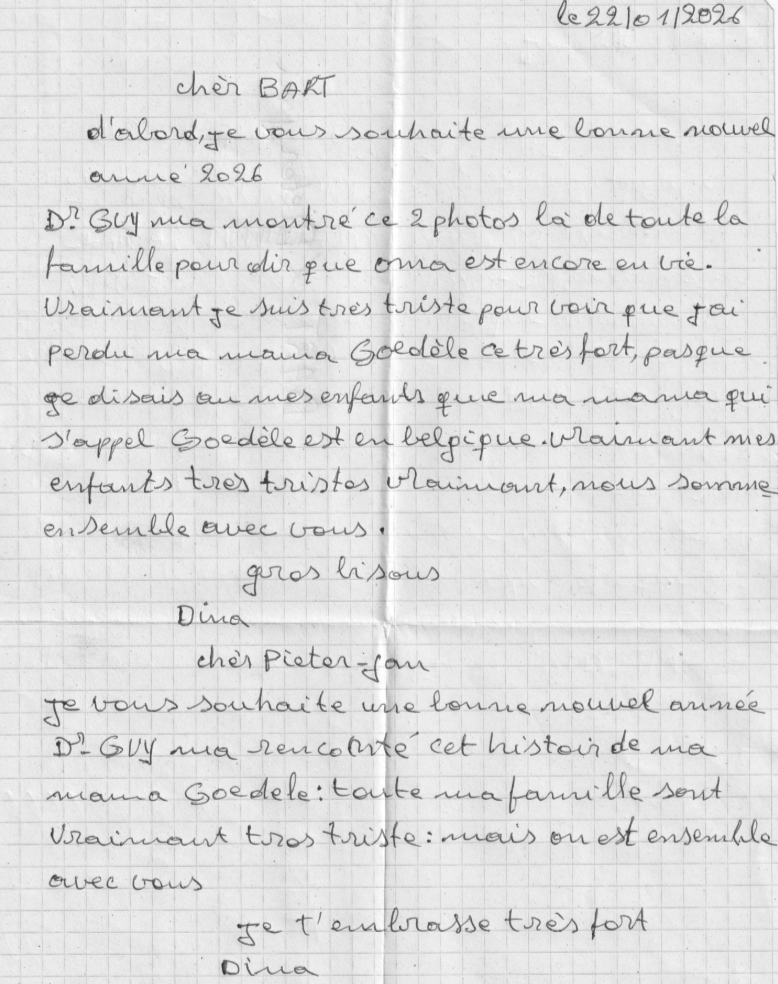 le 22/01/2026
chèr BART
d'abord, je vous souhaite une bonne nouvel
anné 2026
Dr. GUY ma montré ce 2 photos là de toute la
famille pour dir que oma est encore en vie.
Vraimant je suis très triste pour voir que j'ai
perdu ma mama Goedèle ce très fort, pasque
je disais au mes enfants que ma mama qui
s'appel Goedèle est en belgique. vraimant mes
enfants très tristes vraimant, nous somme
ensemble avec vous.
gros bisous
Dina
chèr Pieter-jan
je vous souhaite une bonne nouvel année
Dr. GUY ma renconté cet histoir de ma
mama Goedele: toute ma famille sont
Vraimant tres triste: mais on est ensemble
avec vous
je t'embrasse très fort
Dina